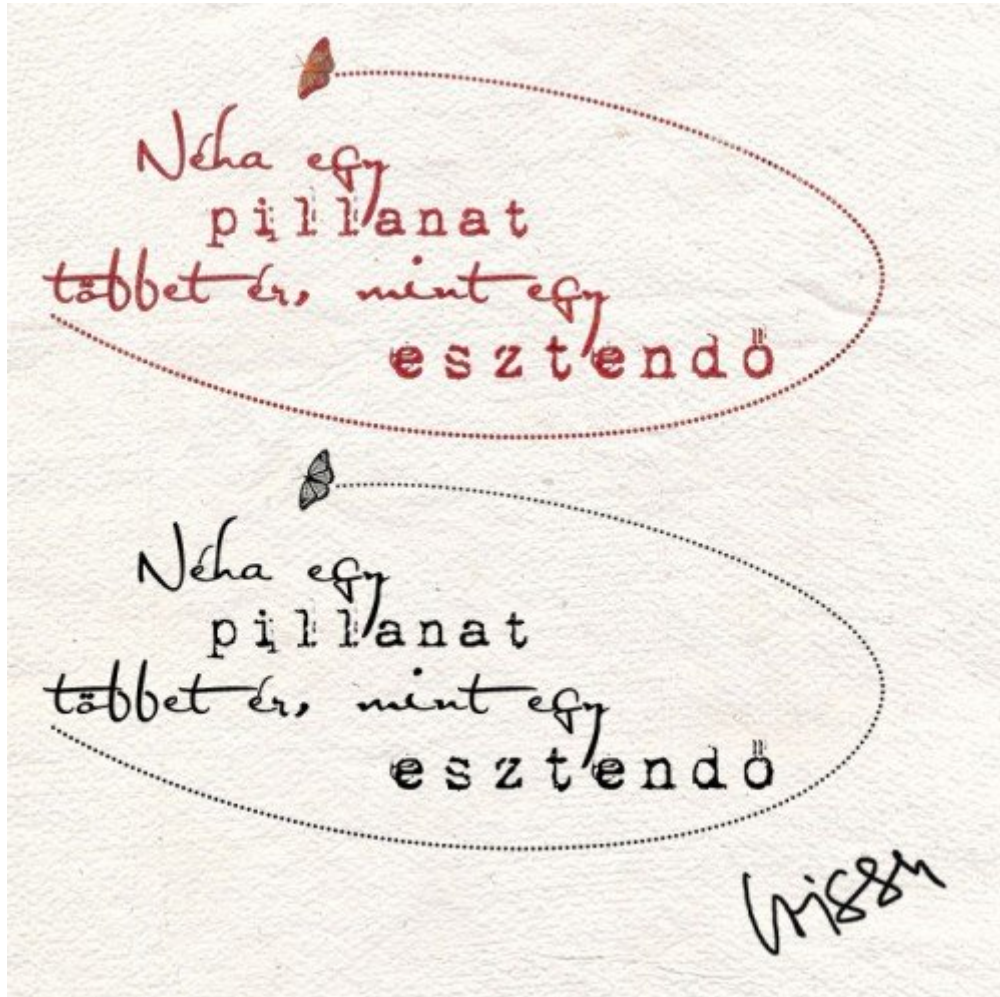 Néha egy
pillanat
többet ér, mint egy
esztendő
Néha egy
pillanat
többet ér, mint egy
esztendő